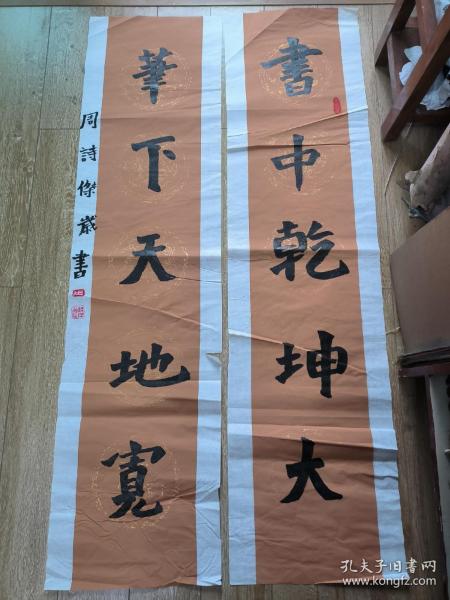 書中乾坤大
筆下天地寬
周詩傑 書
孔夫子旧书网
www.kongfz.com